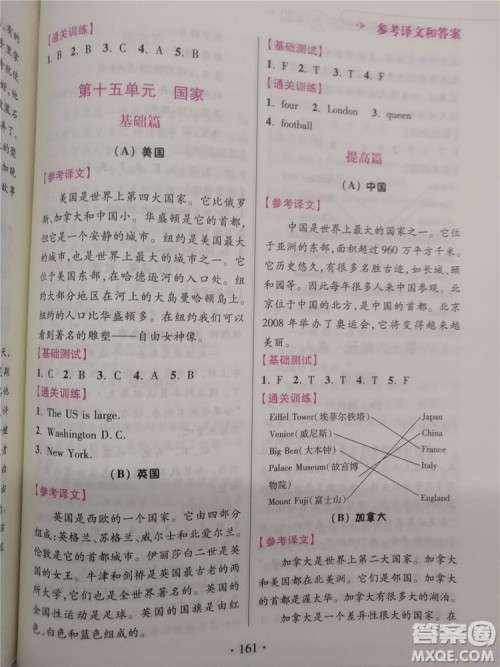 参考译文和答案
【通关训练】
1. B 2. B 3. C 4. A 5. B
第十五单元 国家
基础篇
(A) 美国
【参考译文】
美国是世界上第四大国家。它比俄罗
斯、加拿大和中国小。华盛顿是它的首都,
但它是一个安静的城市。纽约是美国最大
的城市,也是世界上最大的城市之一。它位
于美国的东部,在哈德逊河的入口处。纽约
的大部分地区在河上的大岛曼哈顿
纽约人口比华盛顿多。在纽约我们可以看
到著名的雕塑——自由女神像。
【基础测试】
1. C 2. B 3. C 4. A 5. B
【通关训练】
1. The US is large.
2. Washington D. C.
3. New York.
(B) 英国
【参考译文】
英国是西欧的一个国家。它由四部分组
成:英格兰、苏格兰、威尔士和北爱尔兰。伦
敦是它的首都城市。伊丽莎白二世是英国
的女王。牛津和剑桥是英格兰的大学。英国的
全国性运动是足球。英国的国旗是由红
色、白色和蓝色组成的。
【基础测试】
1. F 2. T 3. T 4. F 5. F
【通关训练】
1. four 2. London 3. queen
4. football
提高篇
(A) 中国
【参考译文】
中国是世界上最大的国家之一。它位
于亚洲的东部,面积超过 960 万平方千米。
它历史悠久,有很多名胜古迹,如长城、颐
和园等。因此每年有很多人来中国参观。北
京位于中国的北方,是中国的首都。北京
2008 年举办了奥运会,它将变得越来越
美丽。
【基础测试】
1. F 2. T 3. F 4. T 5. F
【通关训练】
Eiffel Tower(埃菲尔铁塔) Japan
Venice(威尼斯) China
Big Ben(大本钟) France
Palace Museum(故宫博 Italy
物院)
Mount Fuji(富士山) England
(B) 加拿大
【参考译文】
加拿大是世界上第二大国家。加拿大
和美国是近邻。它们是很好的朋友。加拿大
的首都是渥太华。加拿大有很多的湖泊。
加拿大是一个差异性很大的国家。在
· 161 ·
答案圈
MXQE.COM